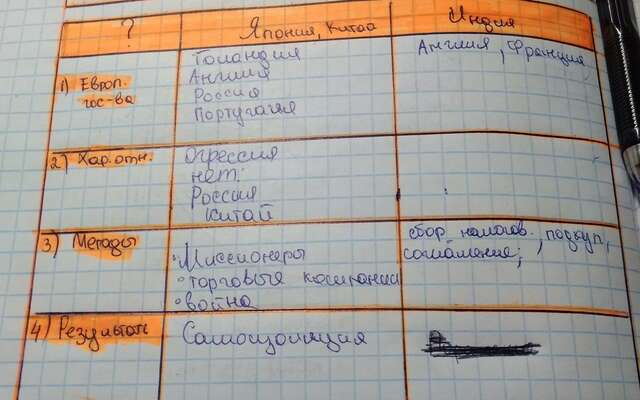 ? Япония, Китай Индия
1) Европ. гос-ва
Голандия
Англия
Россия
Португагия
Англия, Франция
2) Хар. отн.
Огрессия
нет.
Россия
Китай
3) Методы
• Миссионеры
• торговыя компании
• война
сбор налогов, подкуп,
соглашения;
4) Результаты
Самоизоляция